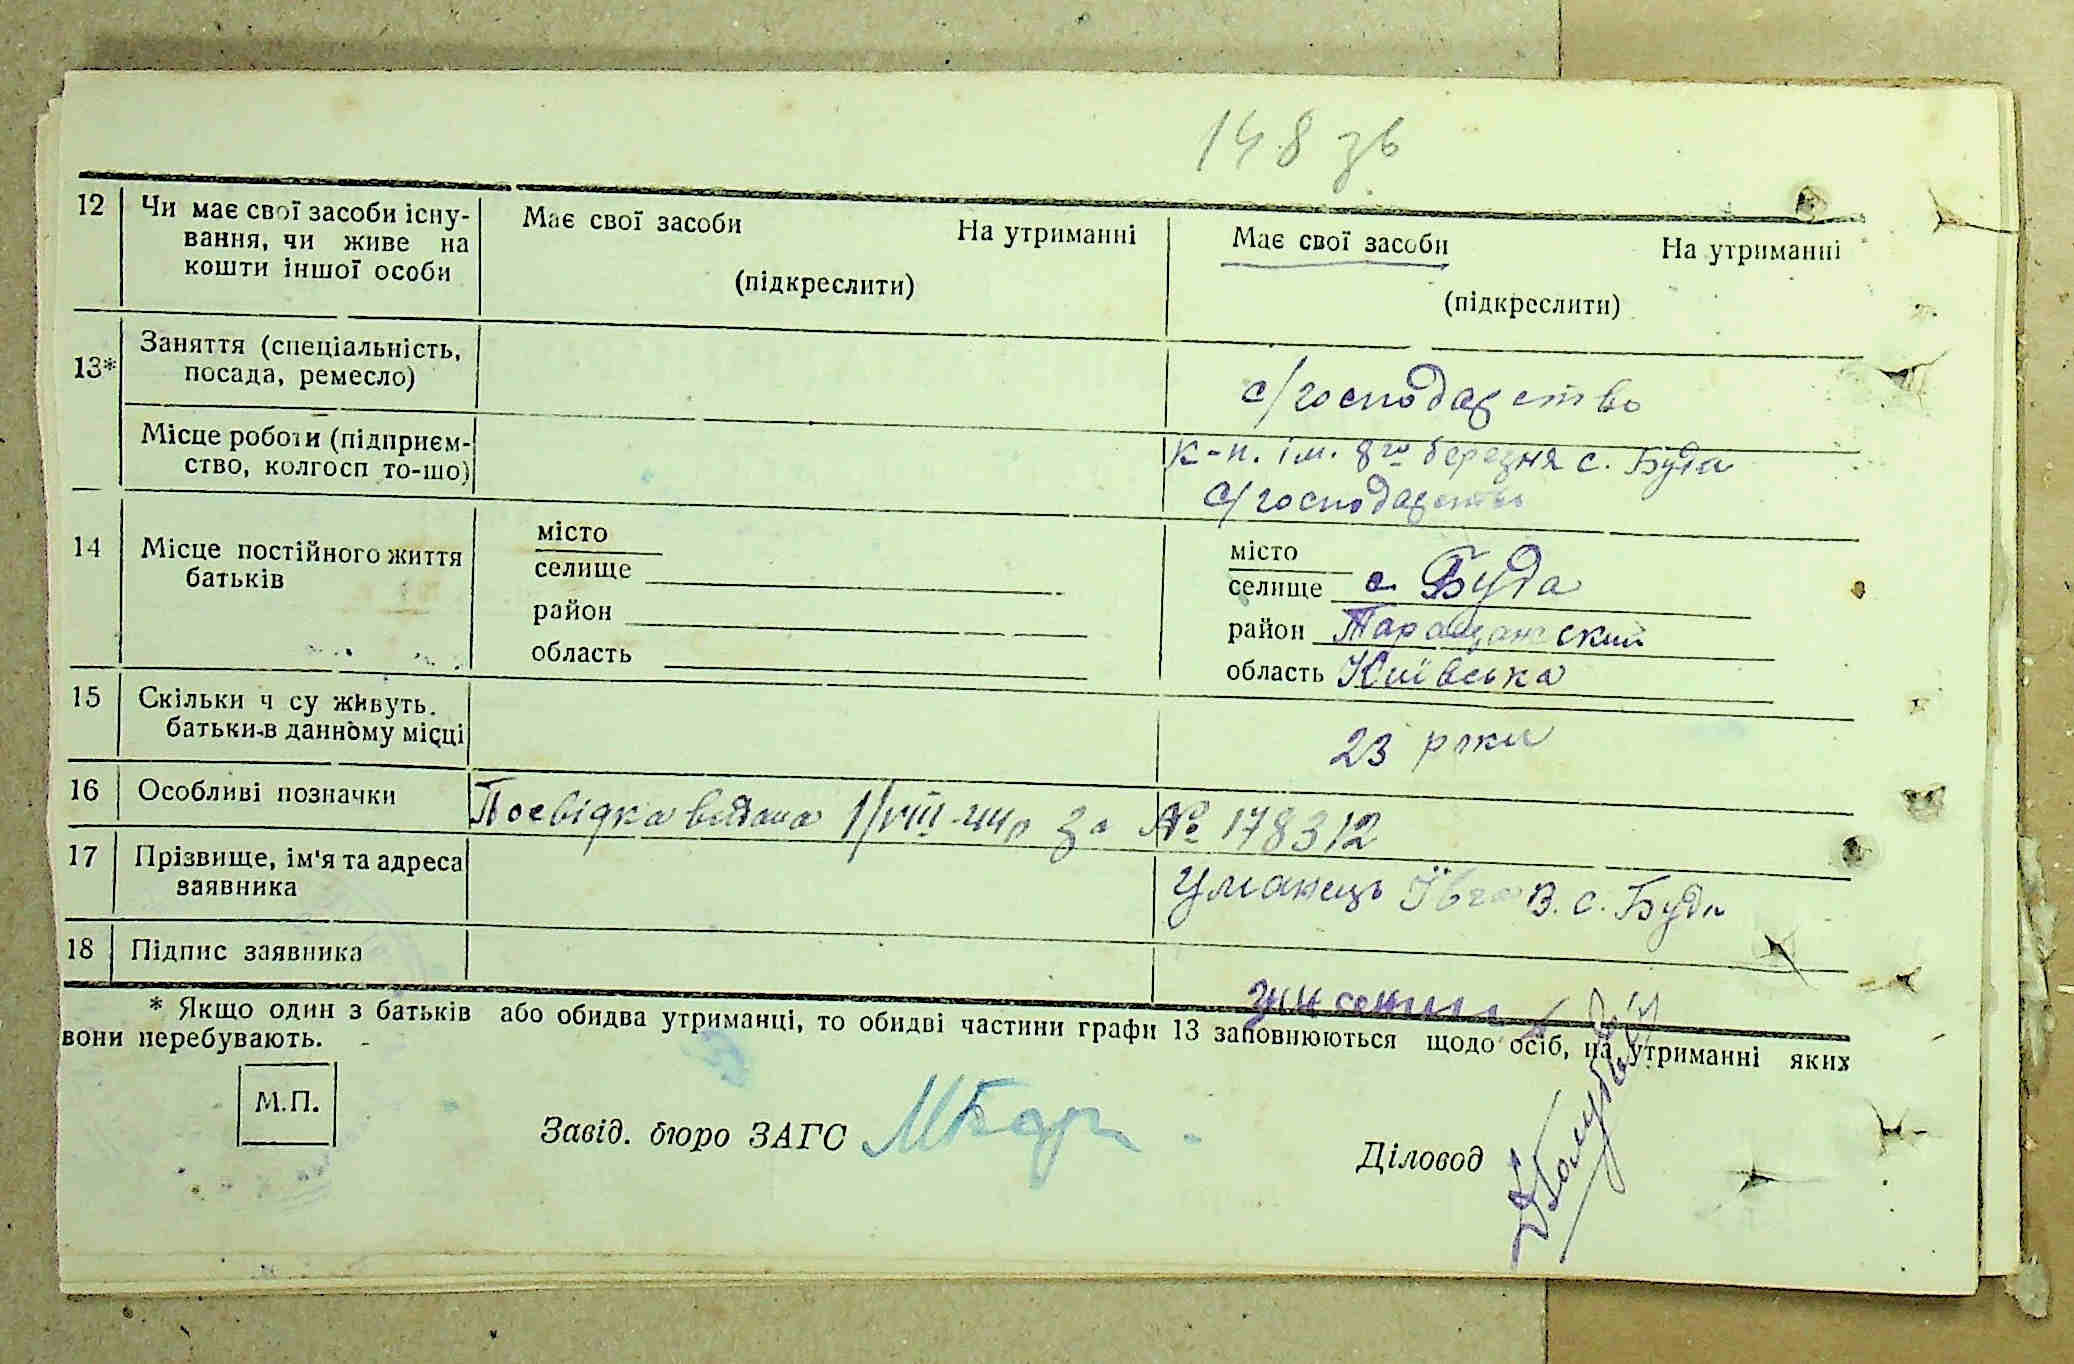 148 зв
12 Чи має свої засоби існу- Має свої засоби На утриманні Має свої засоби На утриманні
вання, чи живе на
кошти іншої особи (підкреслити) (підкреслити)
13* Заняття (спеціальність,
посада, ремесло) с/господарство
Місце роботи (підприєм- к-п. ім. 8го березня с. Буда
ство, колгосп то-що) с/господарство
14 Місце постійного життя місто місто
батьків селище селище с. Буда
район район Таращанский
область область Київська
15 Скільки ч су живуть.
батьки-в данному місці 23 роки
16 Особливі позначки Посвідка видана 1/VIII-44р за № 178312
17 Прізвище, ім'я та адреса Уманець В. с. Буда
заявника
18 Підпис заявника
* Якщо один з батьків або обидва утриманці, то обидві частини графи 13 заповнюються щодо осіб, на утриманні яких
вони перебувають.
М.П.
Завід. бюро ЗАГС
Діловод